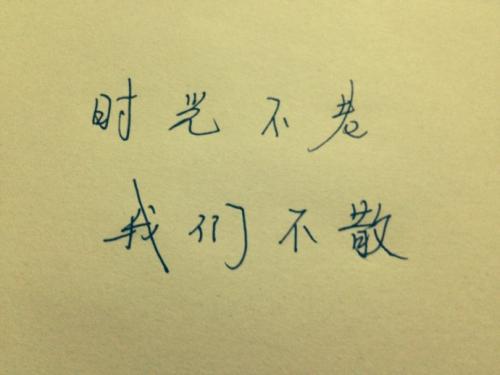 时光不老
我们不散